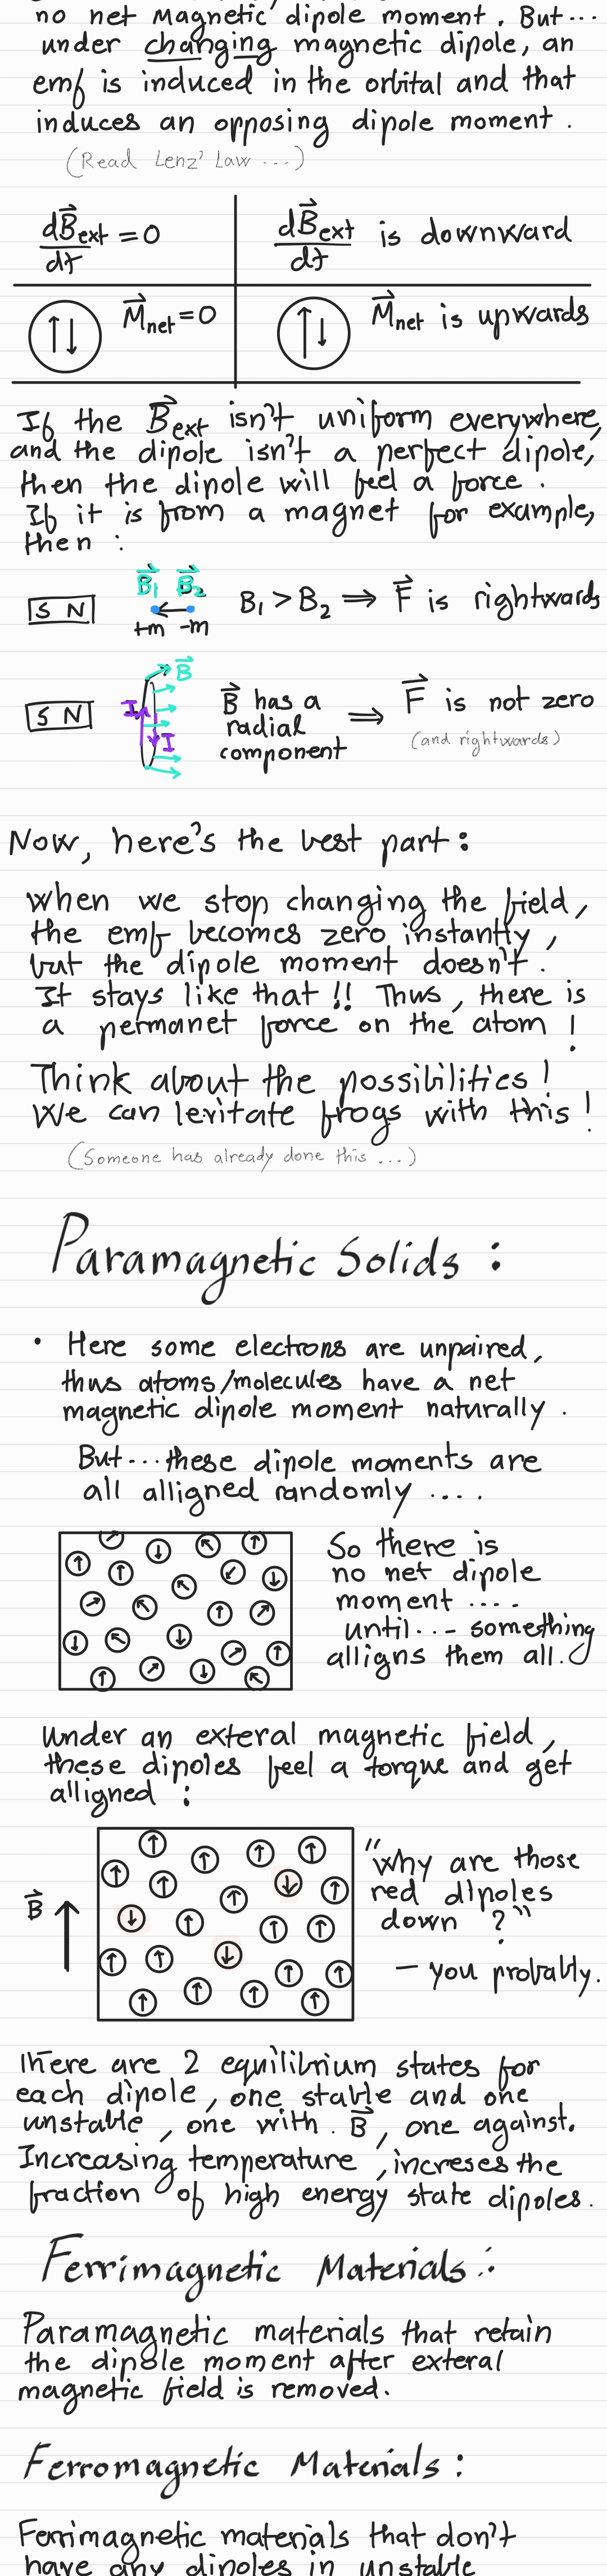 no net magnetic dipole moment. But...
under changing magnetic dipole, an
emf is induced in the orbital and that
induces an opposing dipole moment.
(Read Lenz' Law ...)
dB⃗ext/dt = 0
dB⃗ext/dt is downward
↑↓ M⃗net = 0
↑↓ M⃗net is upwards
If the B⃗ext isn't uniform everywhere,
and the dipole isn't a perfect dipole,
then the dipole will feel a force.
If it is from a magnet for example,
then :
B⃗1 B⃗2
S N
+m -m
B1 > B2 ⟹ F⃗ is rightwards
B⃗
S N
I
I
B⃗ has a
radial
component
⟹ F⃗ is not zero
(and rightwards)
Now, here's the best part :
when we stop changing the field,
the emf becomes zero instantly,
but the dipole moment doesn't.
It stays like that !! Thus, there is
a permanet force on the atom !
Think about the possibilities !
We can levitate frogs with this !
(Someone has already done this ...)
Paramagnetic Solids :
• Here some electrons are unpaired,
thus atoms/molecules have a net
magnetic dipole moment naturally.
But... these dipole moments are
all alligned randomly ....
So there is
no net dipole
moment ....
until ... something
alligns them all.
Under an exteral magnetic field,
these dipoles feel a torque and get
alligned :
B⃗
"Why are those
red dipoles
down ?"
— you probably.
There are 2 equilibrium states for
each dipole, one stable and one
unstable, one with B⃗, one against.
Increasing temperature, increses the
fraction of high energy state dipoles.
Ferrimagnetic Materials :
Paramagnetic materials that retain
the dipole moment after exteral
magnetic field is removed.
Ferromagnetic Materials :
Ferrimagnetic materials that don't
have any dipoles in unstable